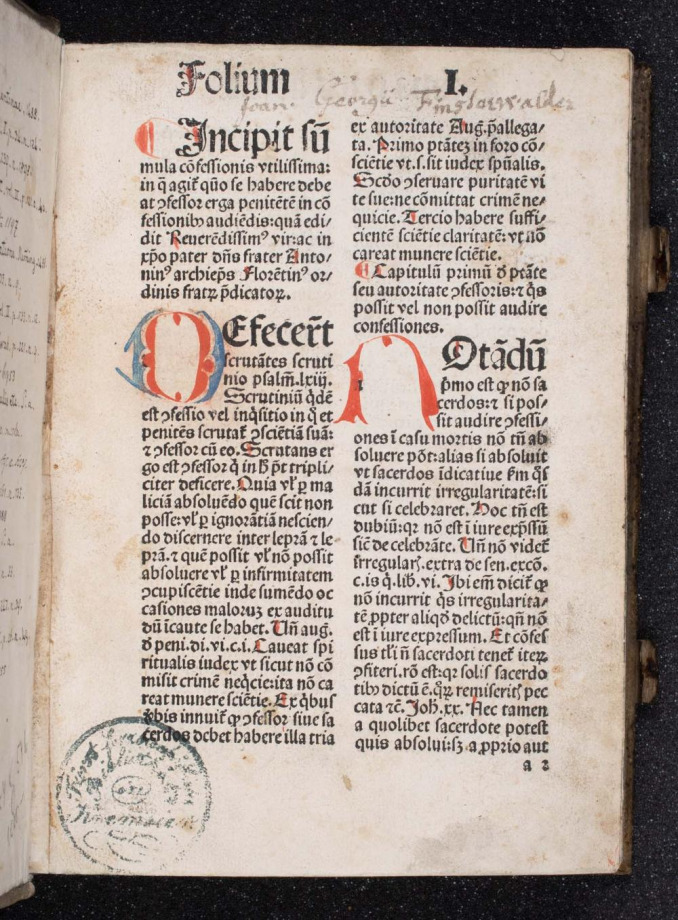 Folium I.
Joan. Georgii Finglerwalder
Incipit sū
mula cōfessionis vtilissima:
in q̄ agit̄ qūo se habere debe
at ꝯfessor erga penitētē in cō
fessionibꝰ audiēdis: quā edi/
dit Reuerēdissimꝰ vir: ac in
xp̄o pater dn̄s frater Anto-
ninꝰ archiep̄s Florētinꝰ or/
dinis fratrꝝ p̄dicatorꝝ.
DEfecer̄t
scrutātes scruti
nio psalm̄. lxiij.
Scrutiniū q̇dē
est ꝯfessio vel inq̇sitio in q̇ et
penitēs scrutat̄ ꝯsciētiā suā:
⁊ ꝯfessor cū eo. Scrutans er
go est ꝯfessor q̇ in h̄ pt̄ tripli/
citer deficere. Quia vl̄ ꝑ ma
liciā absoluēdo quē scit non
posse: vl̄ ꝑ ignorātiā nescien/
do discernere inter leprā ⁊ le
prā. ⁊ quē possit vl̄ nō possit
absoluere vl̄ ꝑ infirmitatem
ꝯcupiscētie inde sumēdo oc
casiones maloruꝫ ex auditu
dū icaute se habet. Vn̄ aug.
ð peni. di. vi. c. i. Caueat spi
ritualis iudex vt sicut nō cō
misit crimē neq̇cie: ita nō ca
reat munere sciētie. Ex q̇bus
v̄bis innuit̄ ꝙ ꝯfessor siue sa
cerdos debet habere illa tria
ex autoritate Aug. p̄allega/
ta. Primo ptāteꝫ in foro cō/
sciētie vt. s. sit iudex spūalis.
Scd̄o ꝯseruare puritatē vi
te sue: ne cōmittat crimē ne/
quicie. Tercio habere suffi/
cientē sciētie claritatē: vt nō
careat munere sciētie.
¶ Capitulū primū ð ptāte
seu autoritate ꝯfessoris: ⁊ q̇s
possit vel non possit audire
confessiones.
NOtādū
p̄mo est ꝙ nō sa
cerdos: ⁊ si pos/
sit audire ꝯfessi/
ones ī casu mortis nō tn̄ ab
soluere pōt: alias si absoluit
vt sacerdos īdicatiue ẜm q̇s
dā incurrit irregularitatē: si
cut si celebraret. Hoc tn̄ est
dubiū: qꝛ nō est ī iure exp̄ssū
siē de celebrāte. Vn̄ nō videt̄
irregularꝭ. extra de sen. excō.
c. is q̇. lib. vi. Ibi em̄ dicit̄ ꝙ
nō incurrit q̇s irregularita/
tē ꝓpter aliqd̄ delictū: qn̄ nō
est ī iure expressum. Et cōfes
sus tl̄i n̄ sacerdoti tenet̄ iteꝝ
ꝯfiteri. rō est: qꝛ solis sacerdo
tibꝰ dictū ē. q̇rꝝ remiseritꝭ pec
cata ⁊c̄. Joh. xx. Nec tamen
a quolibet sacerdote potest
quis absolui: sꝫ a ꝓprio aut
a 2